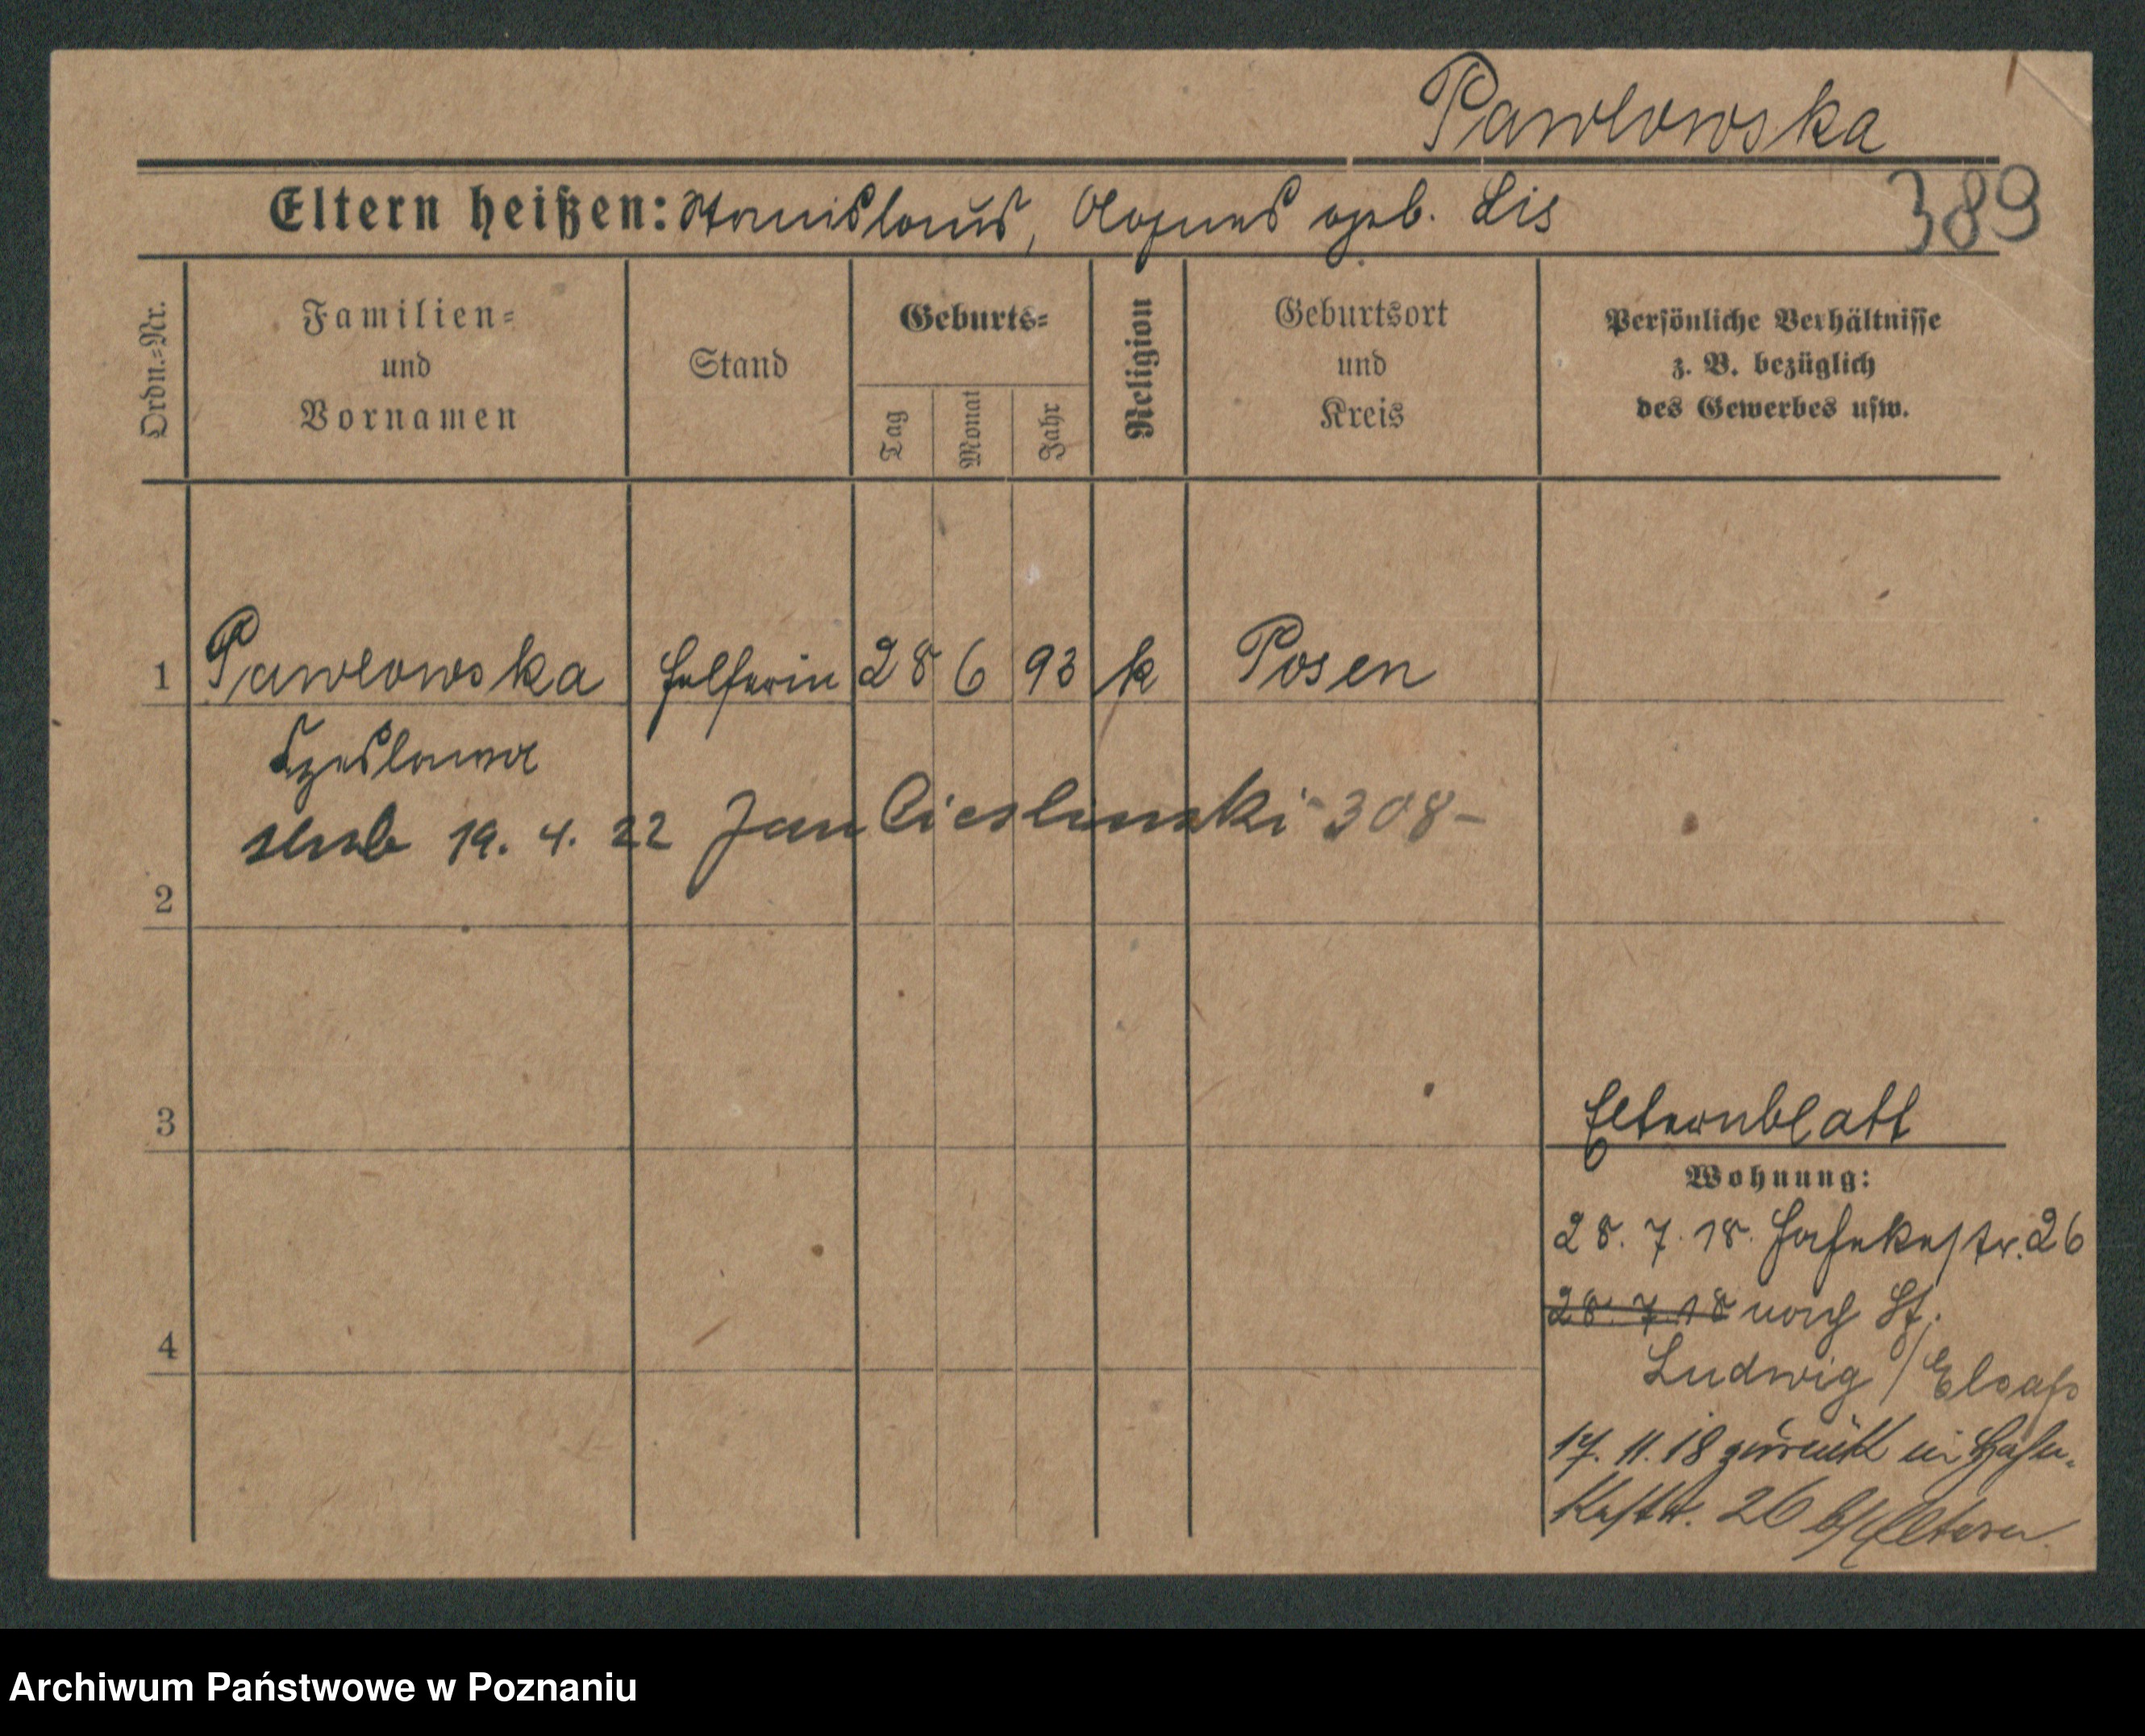 Pawlowska
389
Eltern heißen: Stanislaus, Agnes geb. Lis
Ordn.=Nr.
Familien=
und
Vornamen
Stand
Geburts=
Tag
Monat
Jahr
Religion
Geburtsort
und
Kreis
Persönliche Verhältnisse
z. B. bezüglich
des Gewerbes usw.
1 Pawlowska Helferin 28 6 93 k Posen
Czeslawa
ślub 19. 4. 22 Jan Cieslinski - 308 -
2
3
Elternblatt
Wohnung:
28. 7. 18. Hohekestr. 26
28. 7. 18 nach St.
4
Ludwig / Elsaß
17. 11. 18 zurück in
26 b/ Eltern.
Archiwum Państwowe w Poznaniu